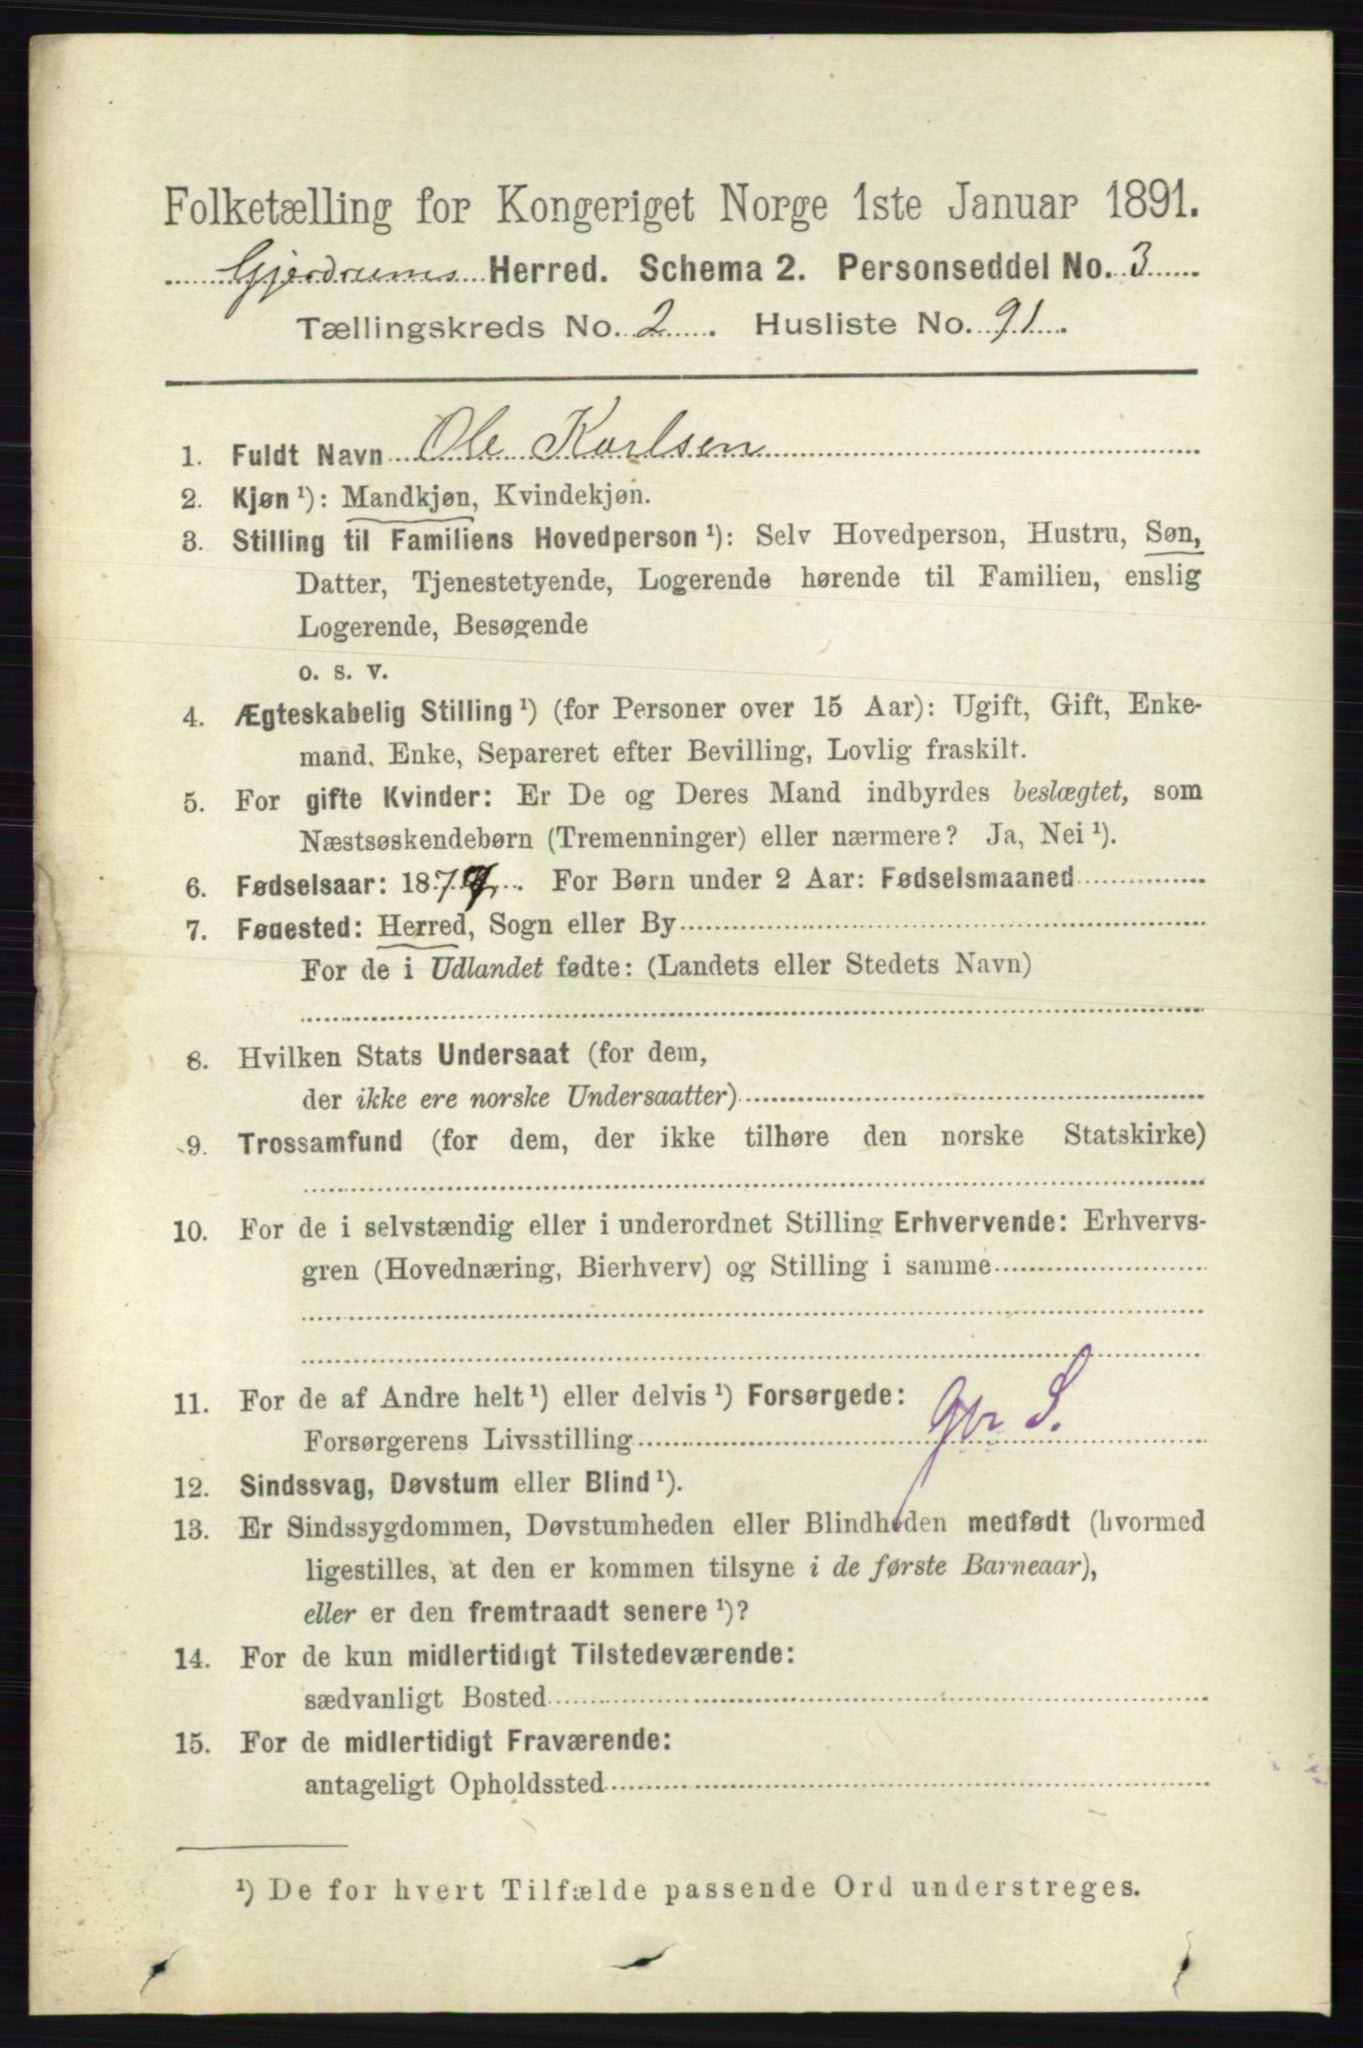 Folketælling for Kongeriget Norge 1ste Januar 1891.
Gjerdrums Herred. Schema 2. Personseddel No. 3
Tællingskreds No. 2. Husliste No. 91.
1. Fuldt Navn Ole Karlsen
2. Kjøn¹): Mandkjøn, Kvindekjøn.
3. Stilling til Familiens Hovedperson¹): Selv Hovedperson, Hustru, Søn,
Datter, Tjenestetyende, Logerende hørende til Familien, enslig
Logerende, Besøgende
o. s. v.
4. Ægteskabelig Stilling¹) (for Personer over 15 Aar): Ugift, Gift, Enke-
mand, Enke, Separeret efter Bevilling, Lovlig fraskilt.
5. For gifte Kvinder: Er De og Deres Mand indbyrdes beslægtet, som
Næstsøskendebørn (Tremenninger) eller nærmere? Ja, Nei¹).
6. Fødselsaar: 1877. For Børn under 2 Aar: Fødselsmaaned
7. Fødested: Herred, Sogn eller By
For de i Udlandet fødte: (Landets eller Stedets Navn)
8. Hvilken Stats Undersaat (for dem,
der ikke ere norske Undersaatter)
9. Trossamfund (for dem, der ikke tilhøre den norske Statskirke)
10. For de i selvstændig eller i underordnet Stilling Erhvervende: Erhvervs-
gren (Hovednæring, Bierhverv) og Stilling i samme
11. For de af Andre helt¹) eller delvis¹) Forsørgede:
Forsørgerens Livsstilling gbr S.
12. Sindssvag, Døvstum eller Blind¹).
13. Er Sindssygdommen, Døvstumheden eller Blindheden medfødt (hvormed
ligestilles, at den er kommen tilsyne i de første Barneaar),
eller er den fremtraadt senere¹)?
14. For de kun midlertidigt Tilstedeværende:
sædvanligt Bosted
15. For de midlertidigt Fraværende:
antageligt Opholdssted
¹) De for hvert Tilfælde passende Ord understreges.